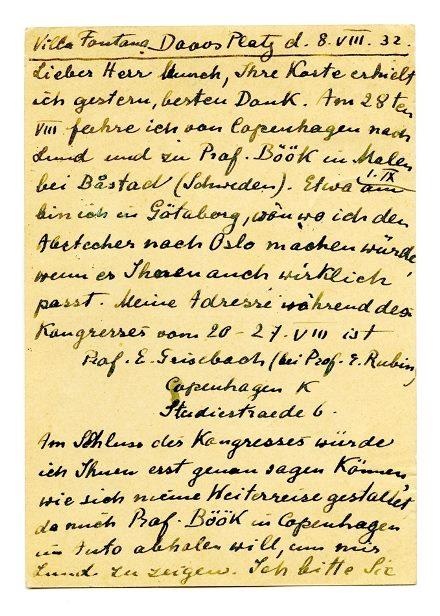 Villa Fontana Davos Platz d. 8. VIII. 32.
Lieber Herr Munch, Ihre Karte erhielt
ich gestern, besten Dank. Am 28ten
VIII fahre ich von Copenhagen nach
Lund und zu Prof. Böök in Malen
bei Båstad (Schweden). Etwa am 1. IX
bin ich in Götaborg, von wo ich den
Abstecher nach Oslo machen würde,
wenn es Ihnen auch wirklich
passt. Meine Adresse während des
Kongresses vom 20-27. VIII ist
Prof. E. Grisebach (bei Prof. E. Rubin)
Copenhagen K
Studiestraede 6.
Am Schluss des Kongresses würde
ich Ihnen erst genau sagen können
wie sich meine Weiterreise gestaltet,
da mich Prof. Böök in Copenhagen
im Auto abholen will, um mir
Lund zu zeigen. Ich bitte Sie